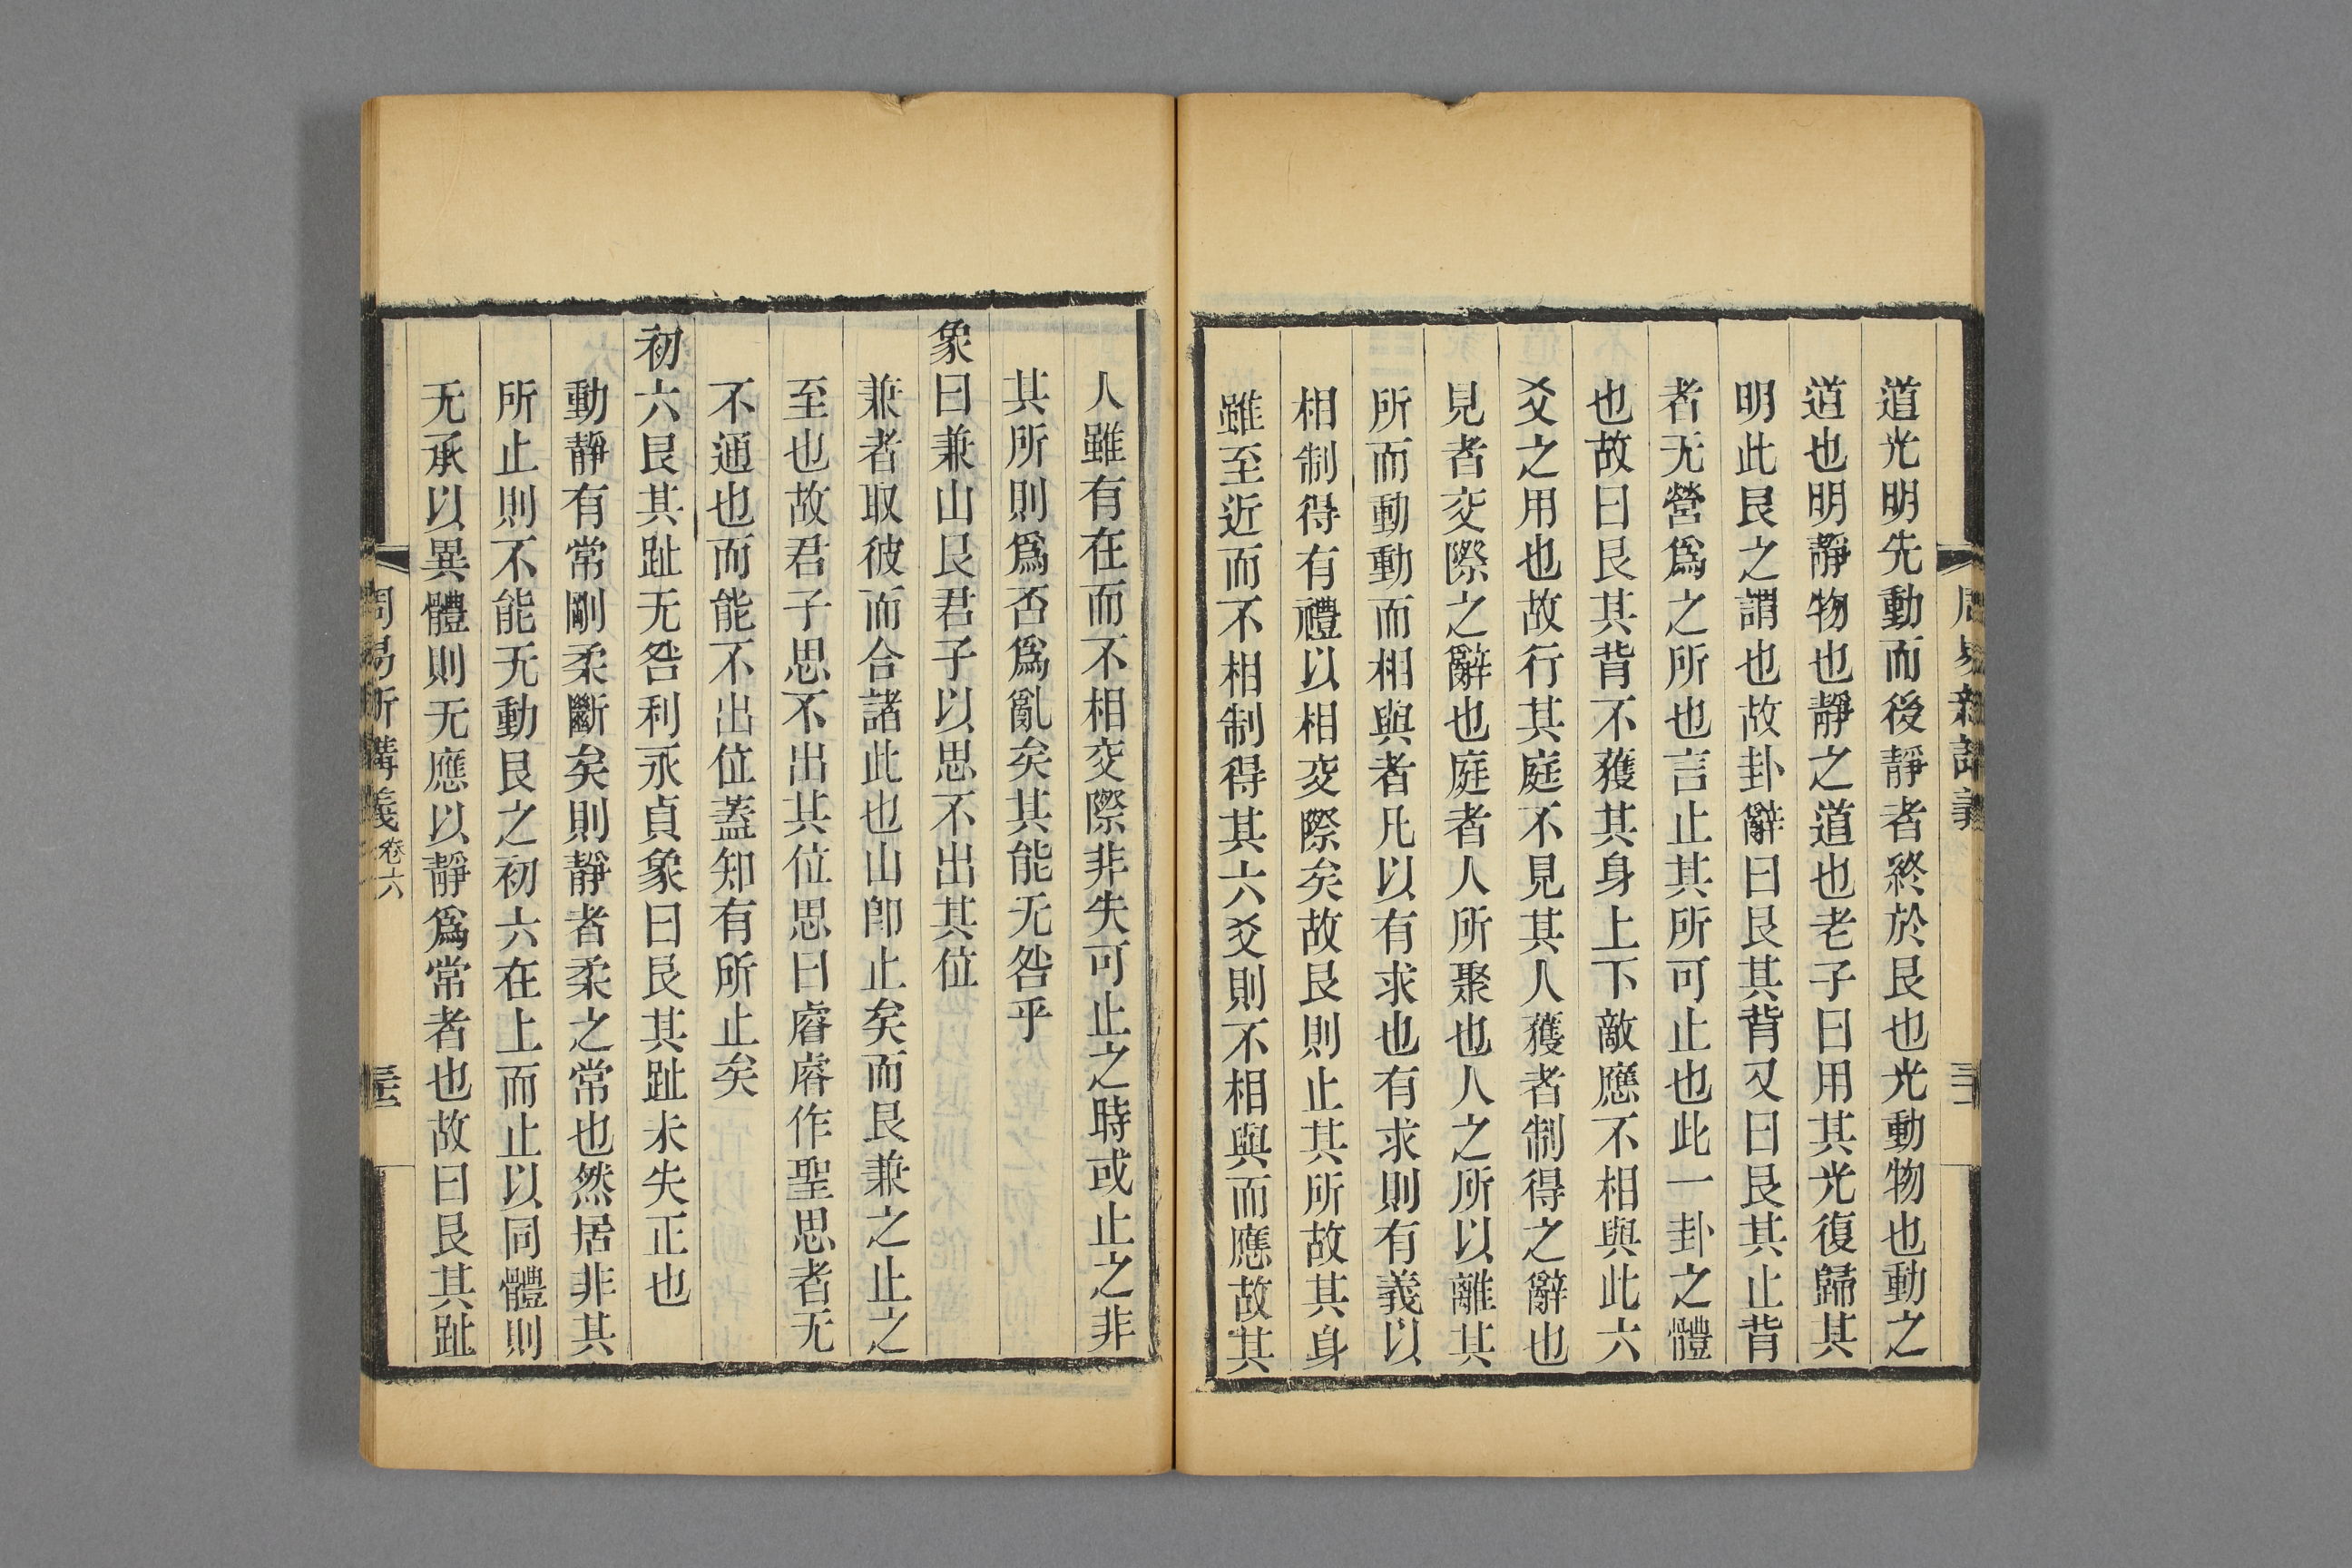 道光明先動而後靜者終於艮也光動物也動之
道也明靜物也靜之道也老子曰用其光復歸其
明此艮之謂也故卦辭曰艮其背又曰艮其止背
者无營爲之所也言止其所可止也此一卦之體
也故曰艮其背不獲其身上下敵應不相與此六
爻之用也故行其庭不見其人獲者制得之辭也
見者交際之辭也庭者人所聚也人之所以離其
所而動動而相與者凡以有求也有求則有義以
相制得有禮以相交際矣故艮則止其所故其身
雖至近而不相制得其六爻則不相與而應故其
人雖有在而不相交際非失可止之時或止之非
其所則爲否爲亂矣其能无咎乎
象曰兼山艮君子以思不出其位
兼者取彼而合諸此也山卽止矣而艮兼之止之
至也故君子思不出其位思曰睿睿作聖思者无
不通也而能不出位蓋知有所止矣
初六艮其趾无咎利永貞象曰艮其趾未失正也
動靜有常剛柔斷矣則靜者柔之常也然居非其
所止則不能无動艮之初六在上而止以同體則
无承以異體則无應以靜爲常者也故曰艮其趾
周易新講義 卷六